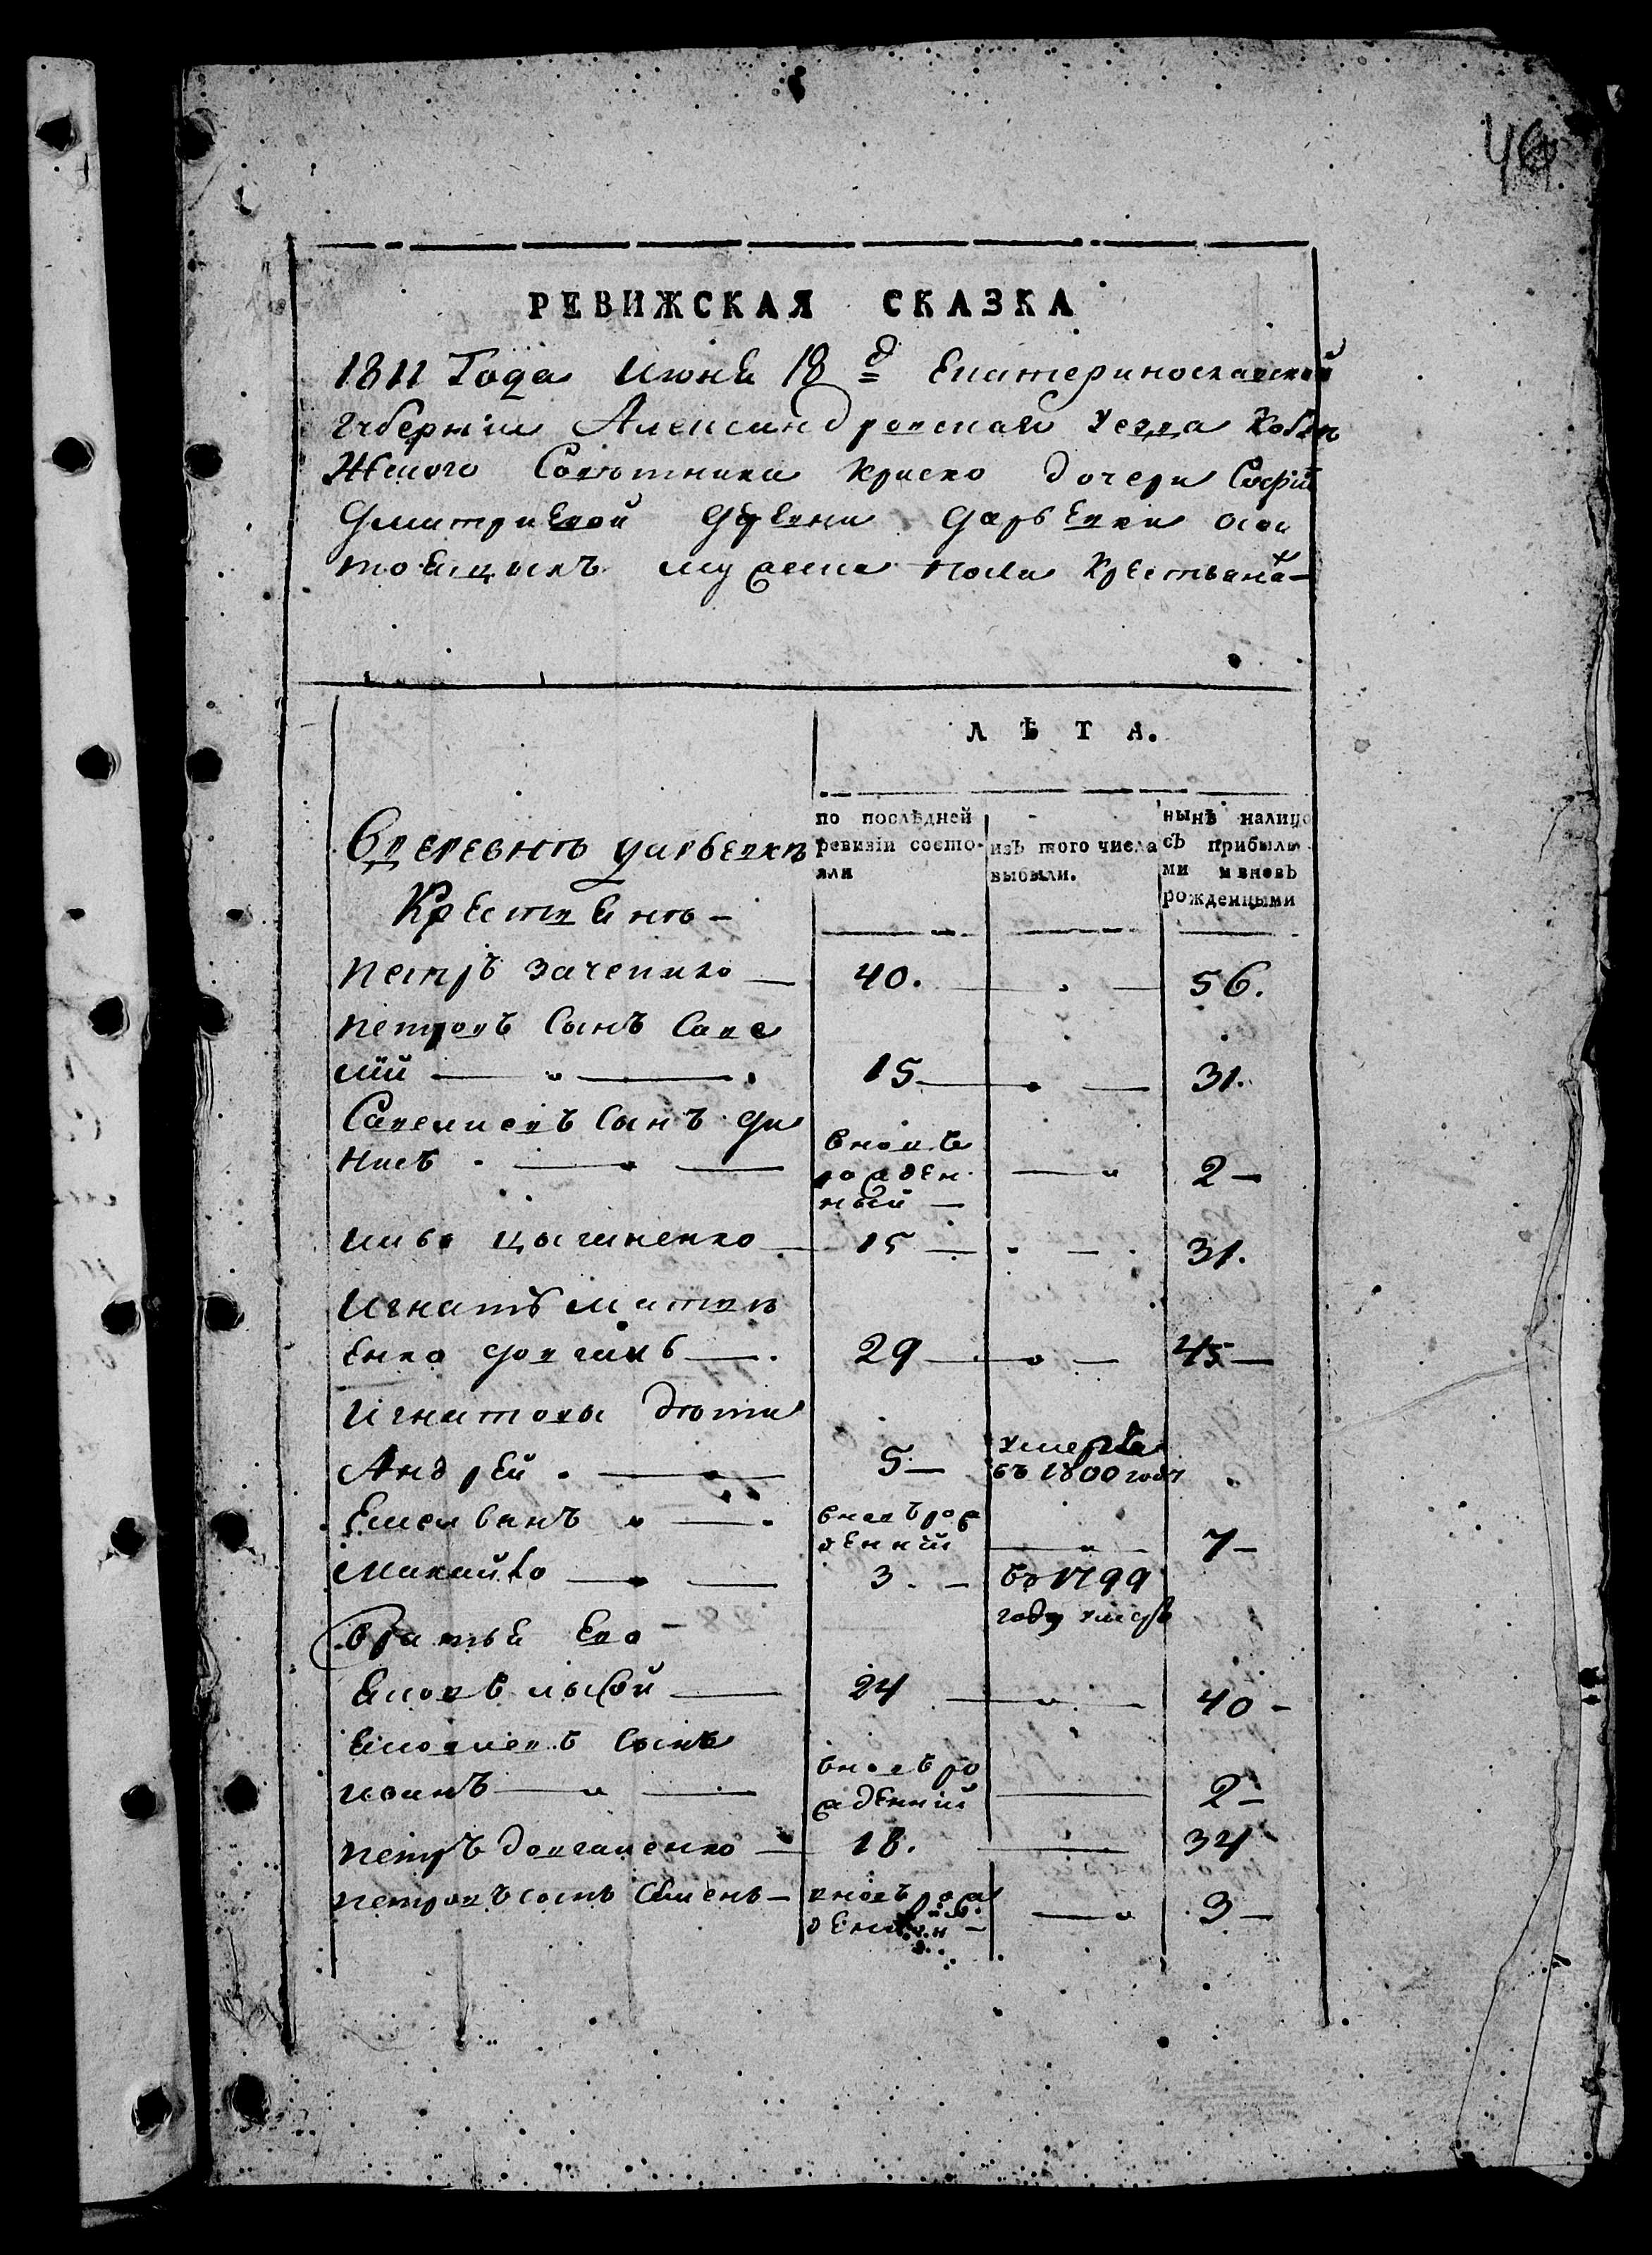 46
РЕВИЖСКАЯ СКАЗКА
1811 Года Июня 18 д Екатеринославской
губернии Александровскаго уезда Колеж
Жского Советника Криско дочери Софии
Дмитриевой деревни Дарьевки осос
тоящихъ мужеска пола крестьянахъ
ЛѢТА.
Вдеревнѣ дарьевкѣ
Крестьянъ
по послѣдней ревизіи состо-яли
изъ того числа выбыли.
нынѣ налицо съ прибылы-ми и вновь рожденными
Петръ Зачепило — 40. — 56.
Петровъ Сынъ Саве
лій — 15 — 31.
Савелиевъ Сынъ Де
нисъ — вновь рожденный — 2 —
цыганенко — 15 — 31.
Игнатъ Матве
енко — 29 — 45 —
Игнатовы дѣти
Андрей — 5 — умеръ въ 1800 году
Емельянъ — вновь рожденній — 7 —
Михайло — 3. — въ 1799 году умеръ
братья Ево
Яковъ лысой — 24 — 40 —
Яковлевъ Сынъ
иванъ — вновь рожденній — 2 —
петръ довгаленко — 18. — 34
петровъ сынъ Семенъ — вновь рожденной — 3 —